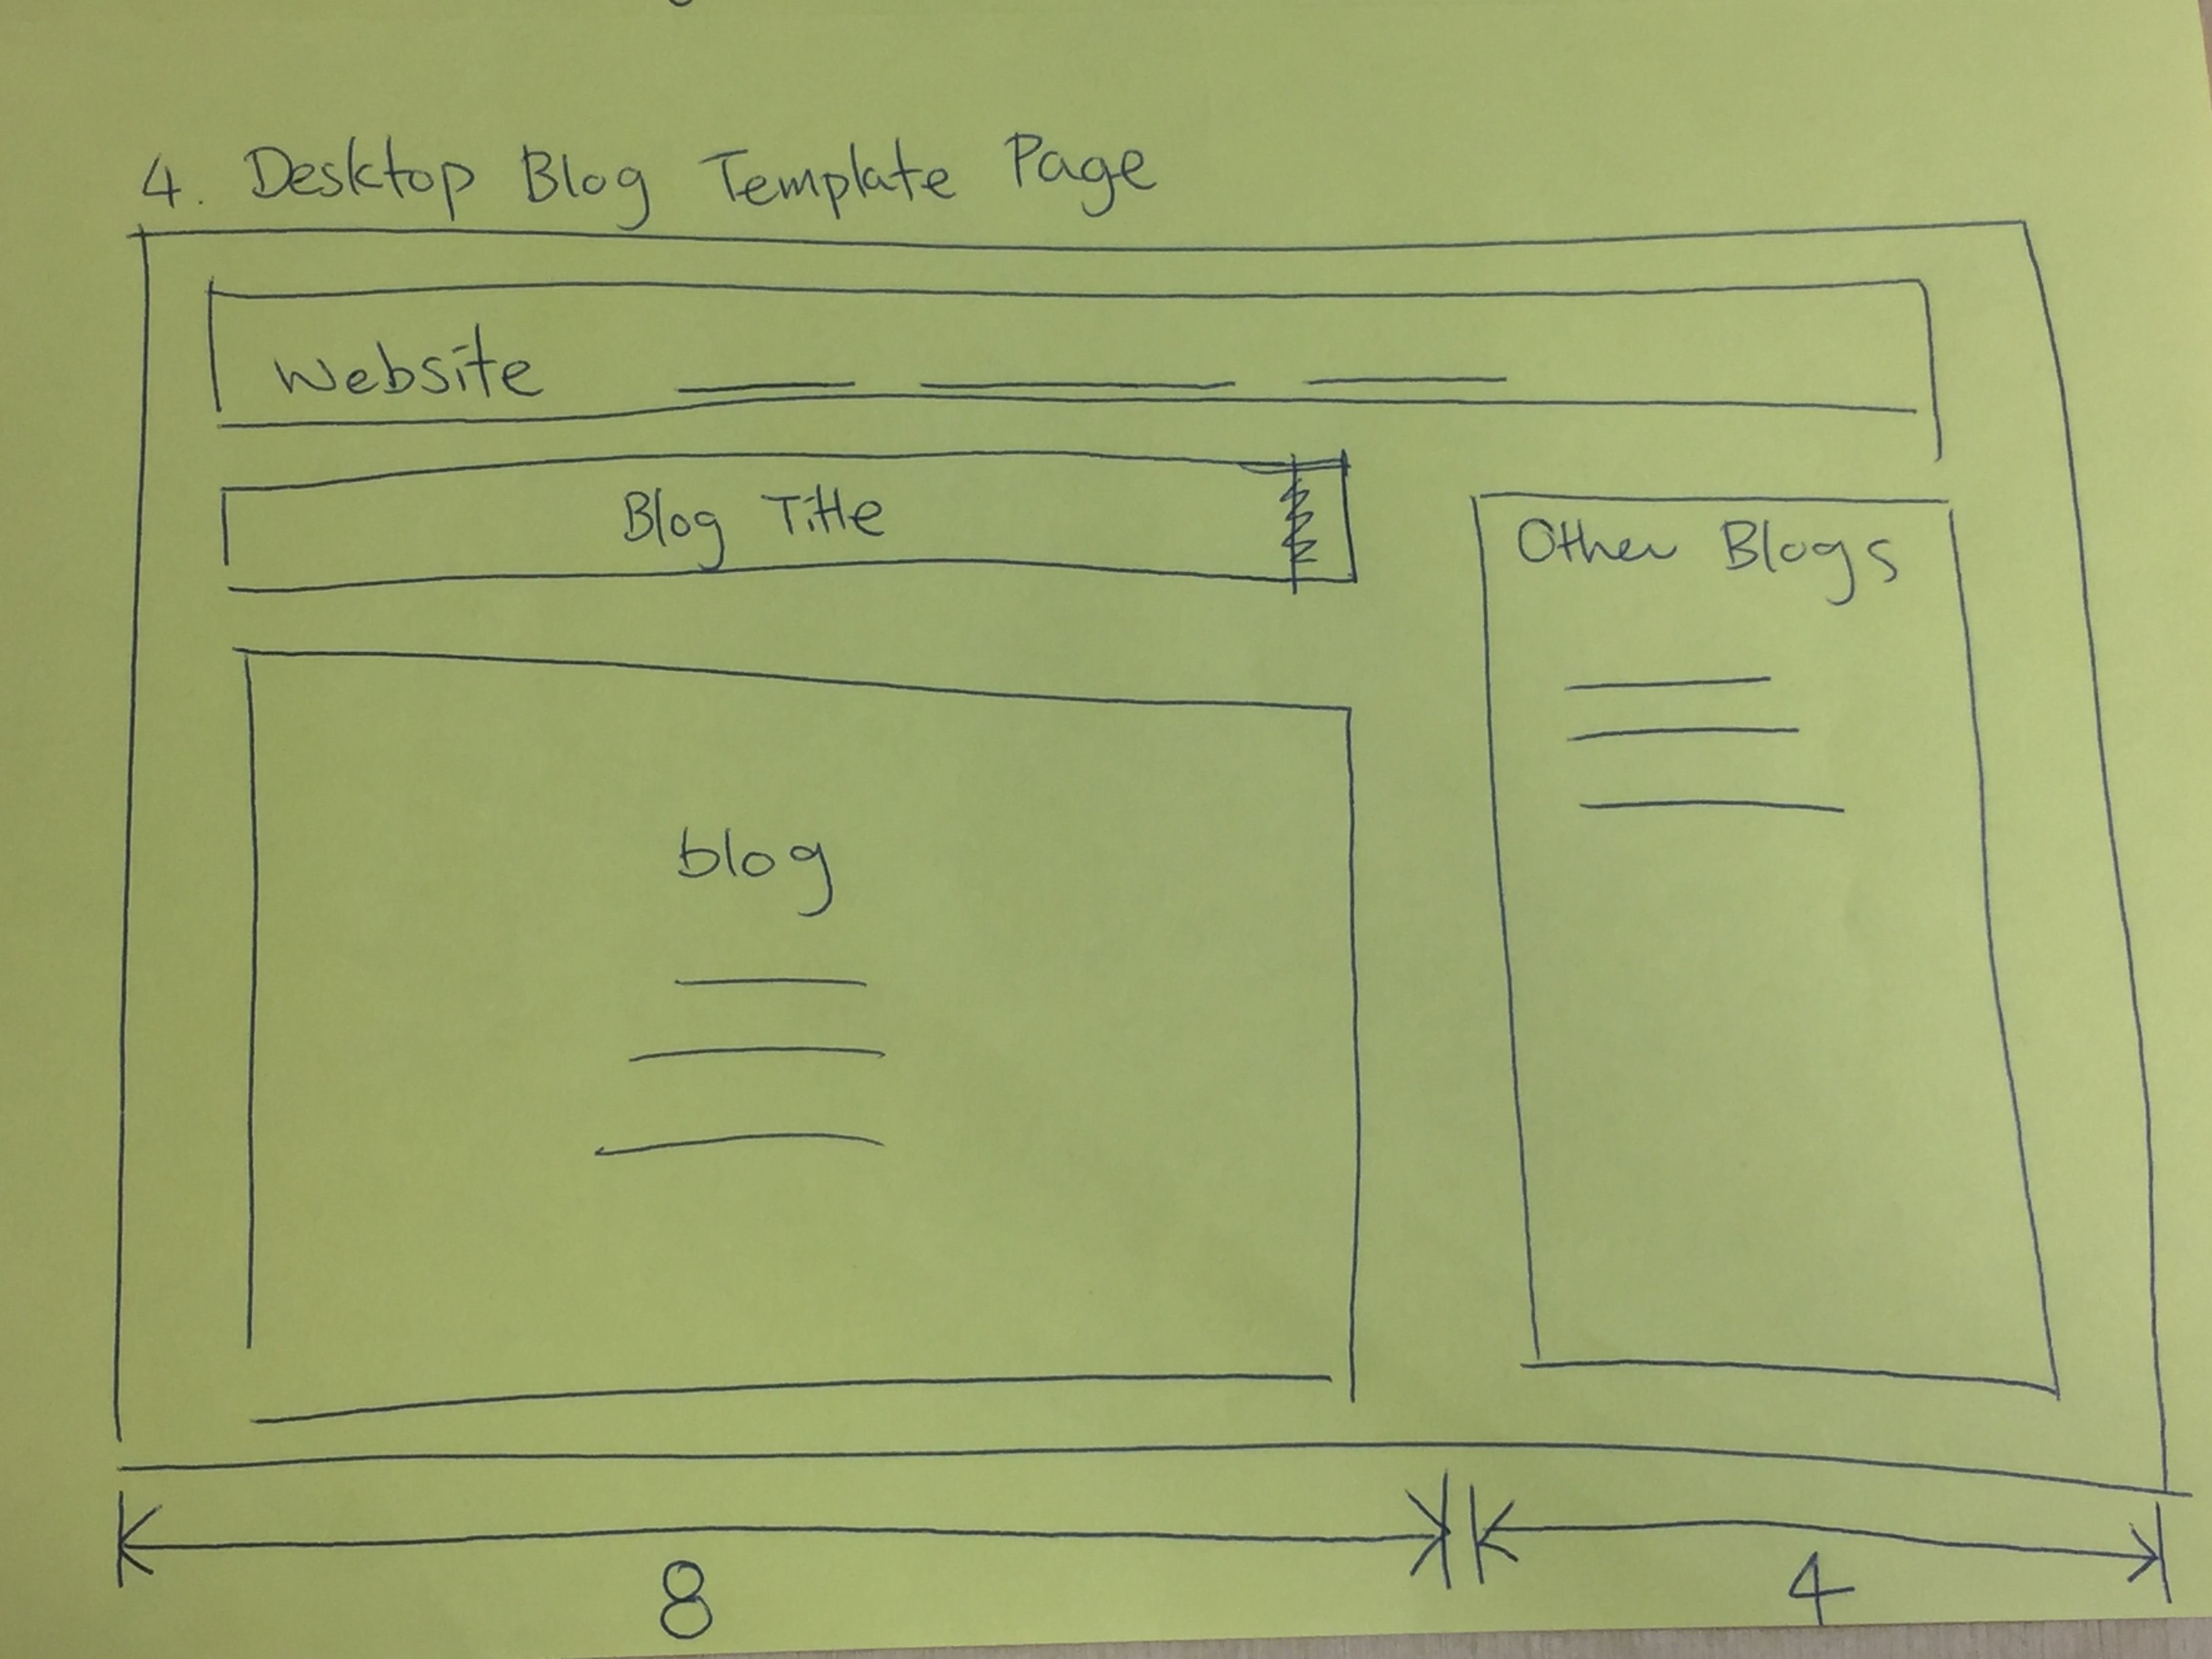 4. Desktop Blog Template Page
Website
Blog Title
blog
Other Blogs
8
4